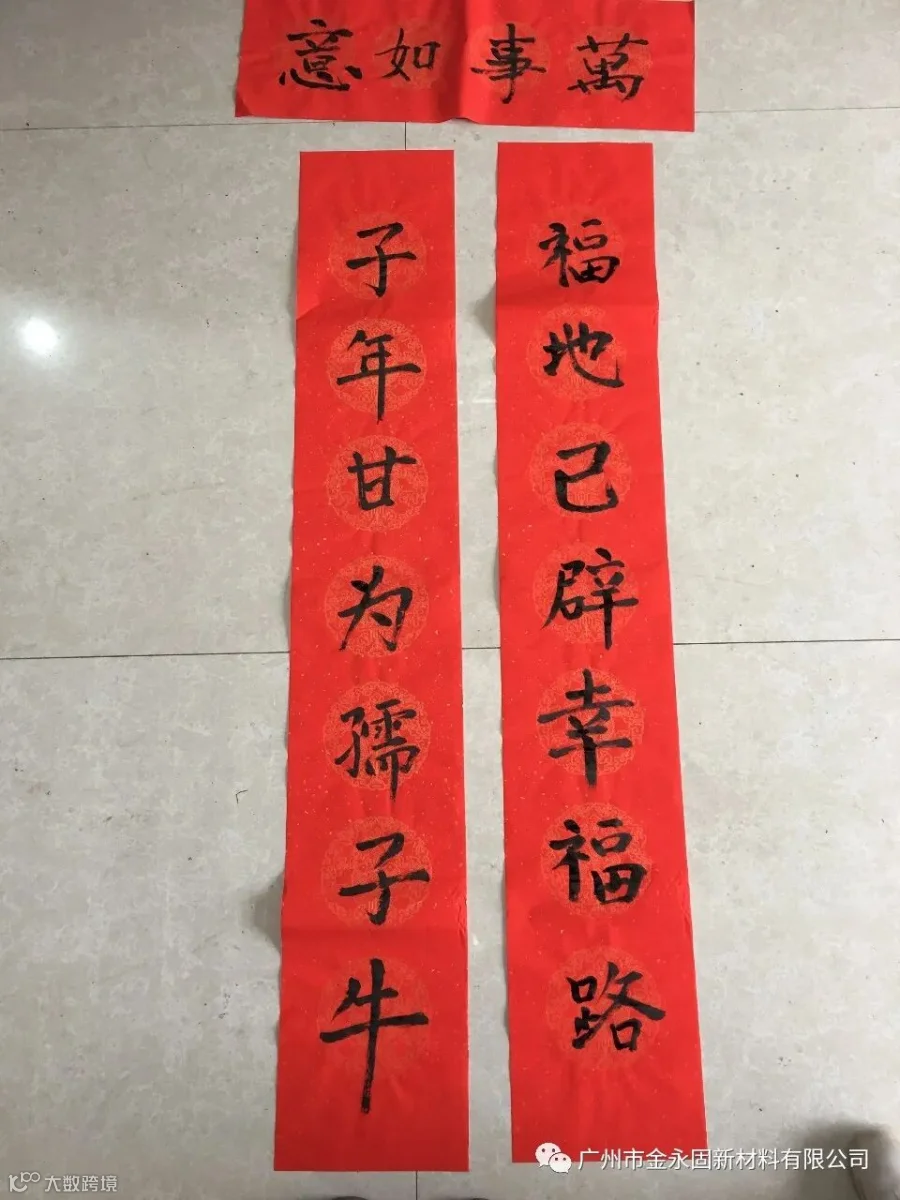 萬事如意
福地已辟幸福路
子年甘为孺子牛
广州市金永固新材料有限公司
大数跨境